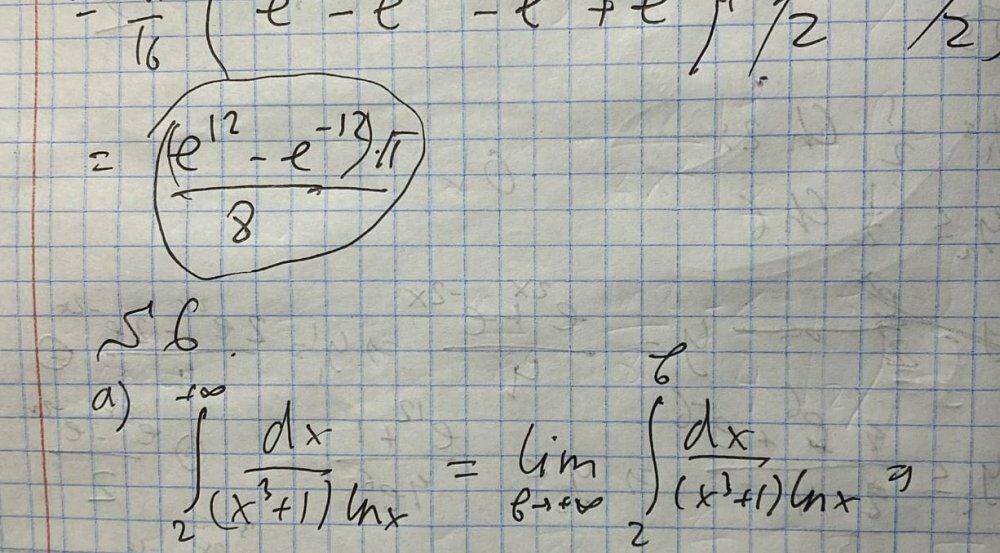 - π/16 ( e - e - e + e ) /2 /2
= (e^12 - e^-12)·π / 8
№ 6.
a) ∫_2^{+∞} dx / (x³+1) ln x = lim_{b→+∞} ∫_2^b dx / (x³+1) ln x =